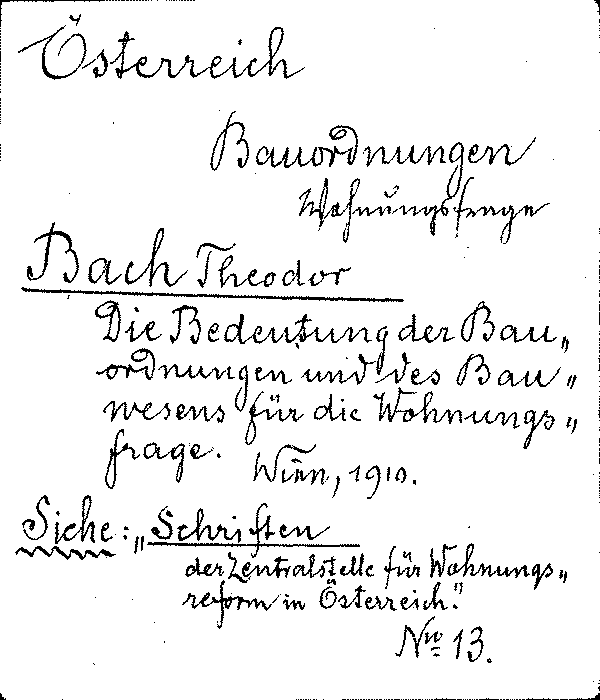 Österreich
Bauordnungen
Wohnungsfrage
Bach Theodor
Die Bedeutung der Bau„
ordnungen und des Bau„
wesens für die Wohnungs„
frage.
Wien, 1910.
Siehe: „Schriften
der Zentralstelle für Wohnungs„
reform in Österreich."
No 13.